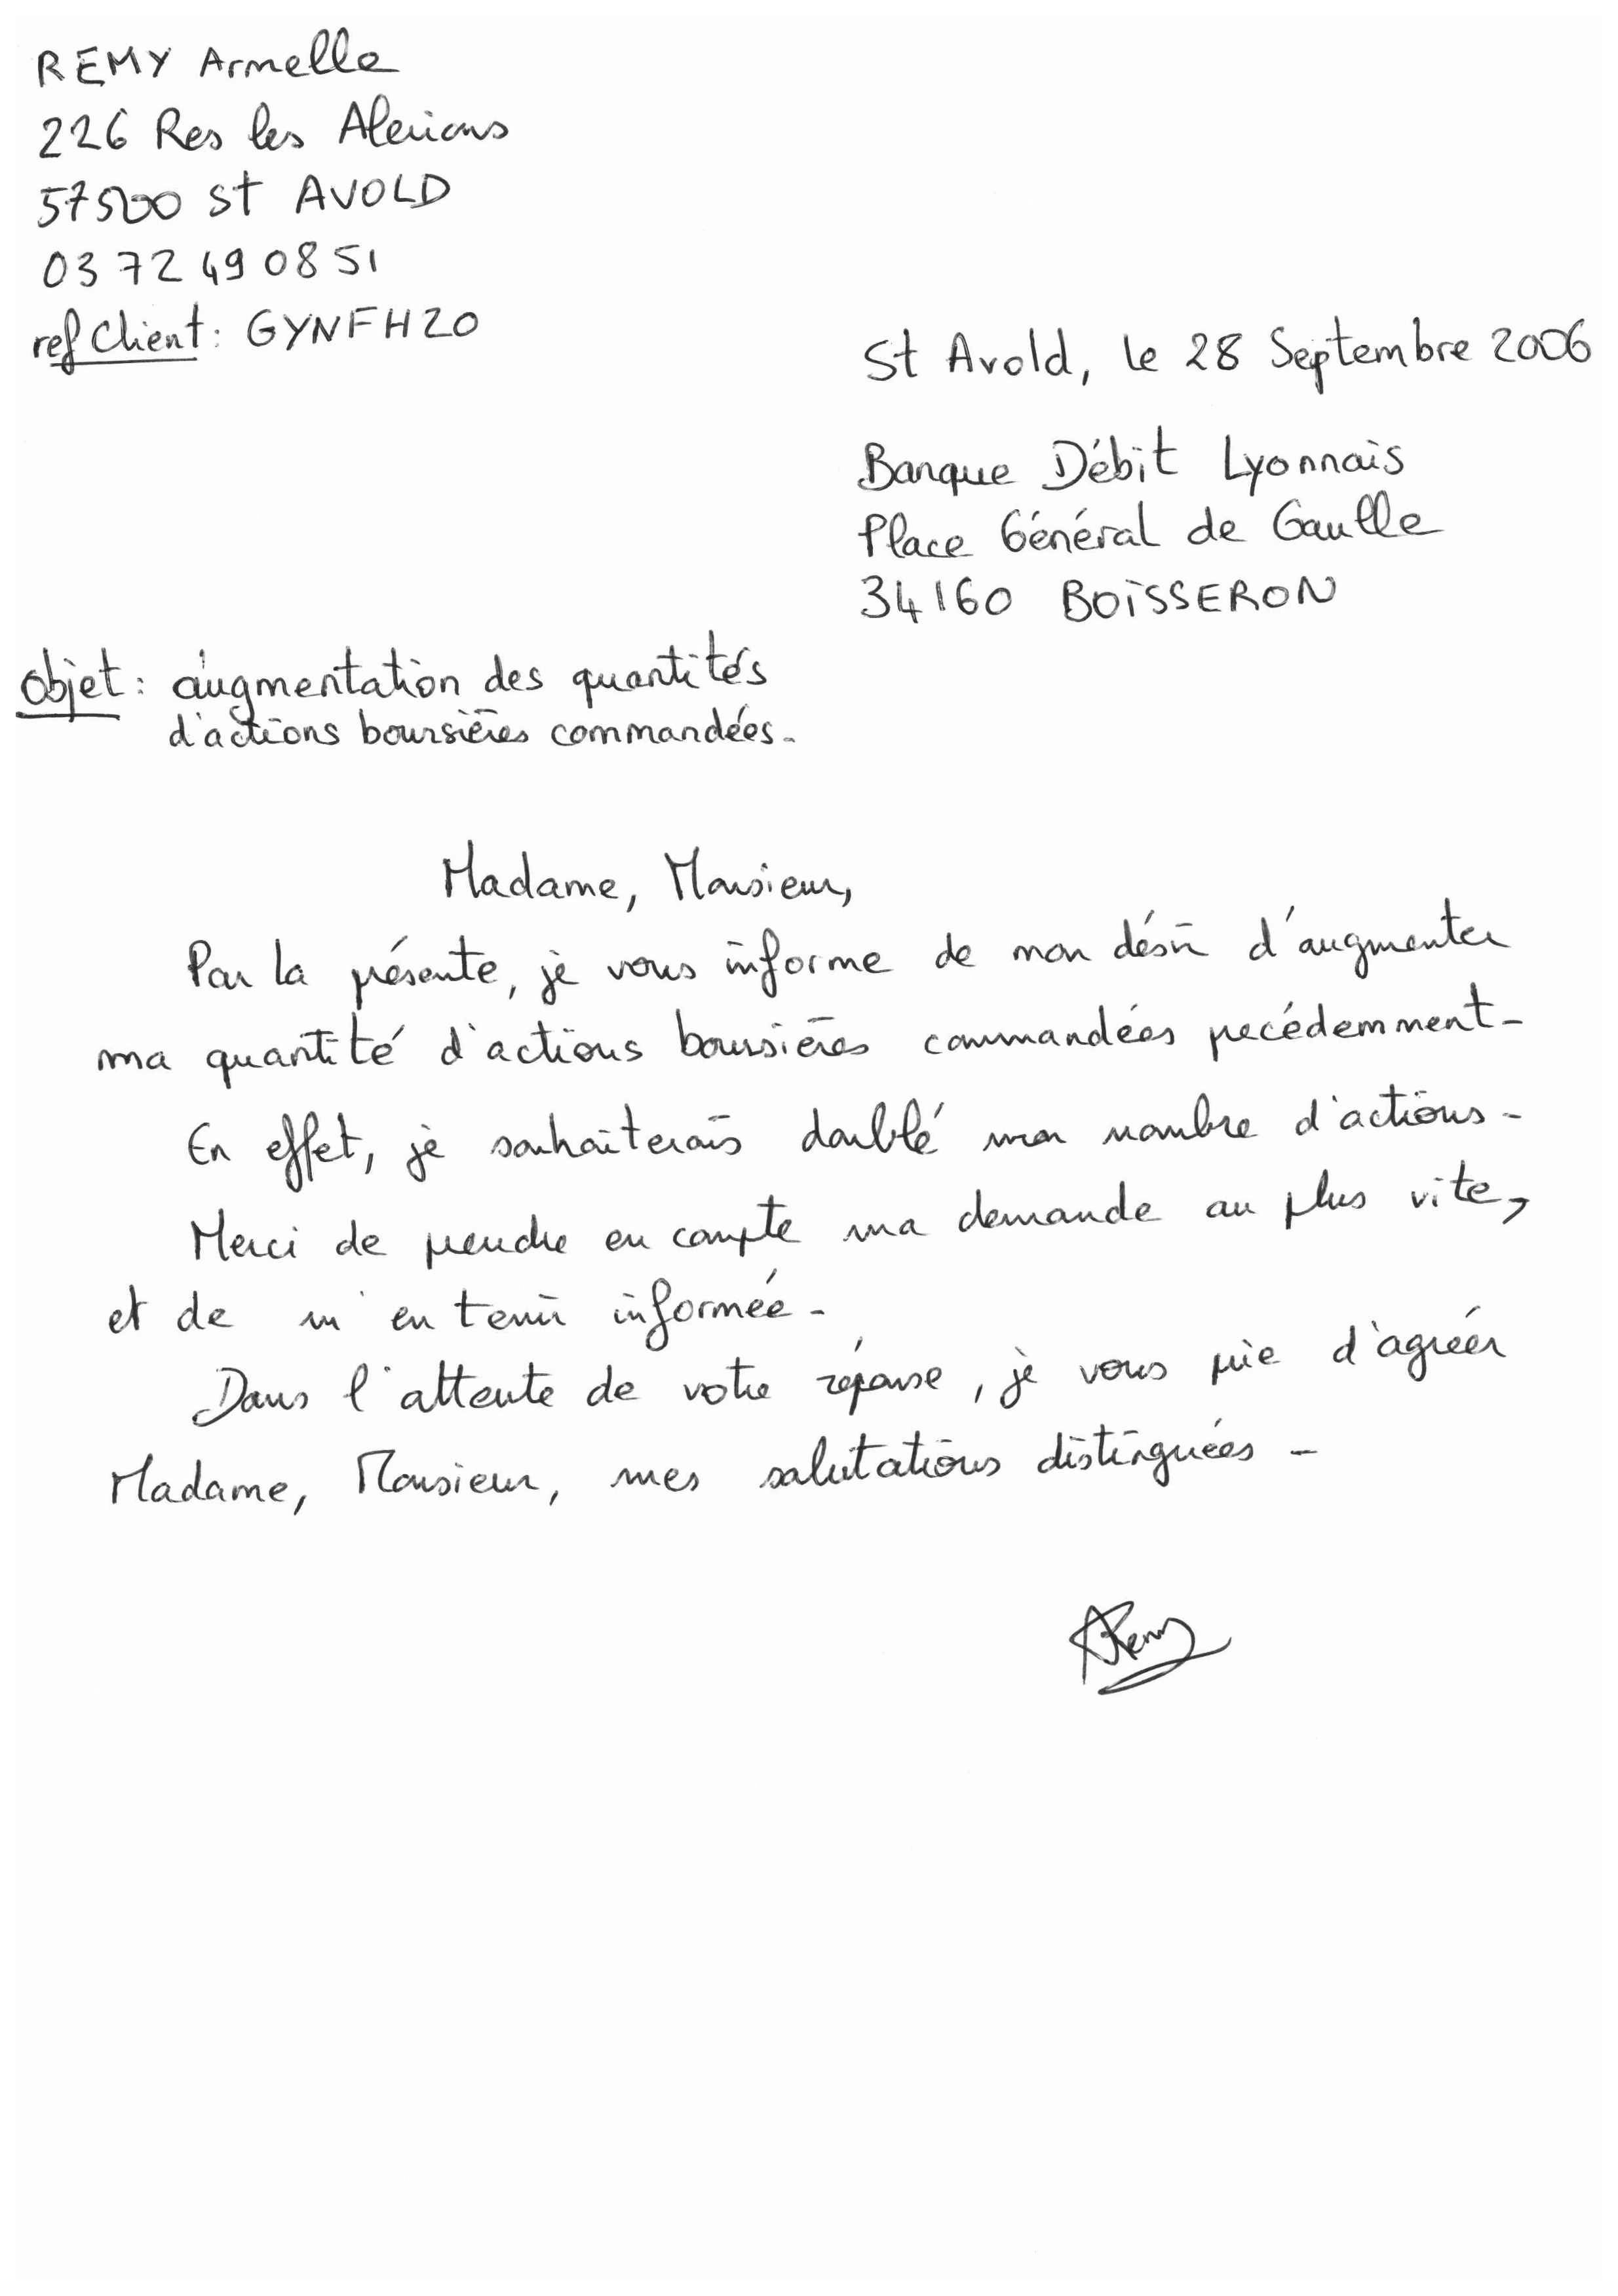 REMY Armelle
226 Res les Alerions
57500 St AVOLD
03 72 49 08 51
ref Client : GYNFH20
St Avold, le 28 Septembre 2006
Banque Débit Lyonnais
Place Général de Gaulle
34160 BOISSERON
Objet : augmentation des quantités
d'actions boursières commandées.
Madame, Monsieur,
Par la présente, je vous informe de mon désir d'augmenter
ma quantité d'actions boursières commandées precédemment.
En effet, je souhaiterais doublé mon nombre d'actions.
Merci de prendre en compte ma demande au plus vite,
et de m'en tenir informée.
Dans l'attente de votre réponse, je vous prie d'agréér
Madame, Monsieur, mes salutations distinguées.
ARemy